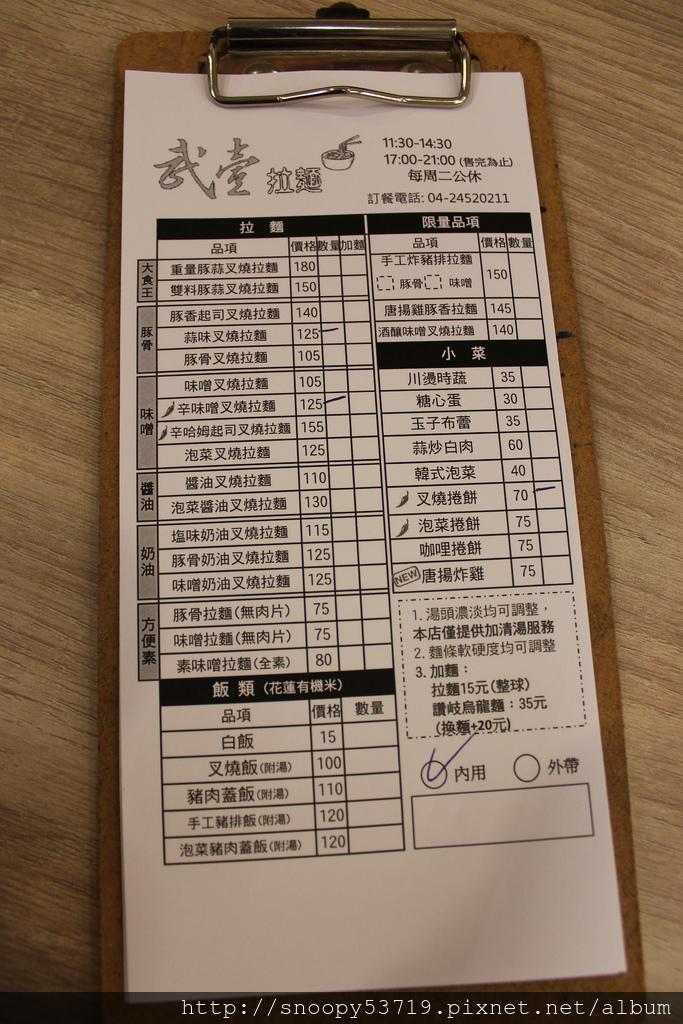 武壹拉麵
11:30-14:30
17:00-21:00 (售完為止)
每周二公休
訂餐電話: 04-24520211
拉 麵
品項 價格 數量 加麵
大食王
重量豚蒜叉燒拉麵 180
雙料豚蒜叉燒拉麵 150
豚骨
豚香起司叉燒拉麵 140
蒜味叉燒拉麵 125
豚骨叉燒拉麵 105
味噌
味噌叉燒拉麵 105
辛味噌叉燒拉麵 125
辛哈姆起司叉燒拉麵 155
泡菜叉燒拉麵 125
醬油
醬油叉燒拉麵 110
泡菜醬油叉燒拉麵 130
奶油
塩味奶油叉燒拉麵 115
豚骨奶油叉燒拉麵 125
味噌奶油叉燒拉麵 125
方便素
豚骨拉麵(無肉片) 75
味噌拉麵(無肉片) 75
素味噌拉麵(全素) 80
飯 類 (花蓮有機米)
品項 價格 數量
白飯 15
叉燒飯(附湯) 100
豬肉蓋飯(附湯) 110
手工豬排飯(附湯) 120
泡菜豬肉蓋飯(附湯) 120
限量品項
品項 價格 數量
手工炸豬排拉麵 150
豚骨 味噌
唐揚雞豚香拉麵 145
酒釀味噌叉燒拉麵 140
小 菜
川燙時蔬 35
糖心蛋 30
玉子布蕾 35
蒜炒白肉 60
韓式泡菜 40
叉燒捲餅 70
泡菜捲餅 75
咖哩捲餅 75
NEW 唐揚炸雞 75
1. 湯頭濃淡均可調整，
本店僅提供加清湯服務
2. 麵條軟硬度均可調整
3. 加麵：
拉麵15元(整球)
讚岐烏龍麵：35元
(換麵+20元)
內用 外帶
http://snoopy53719.pixnet.net/album